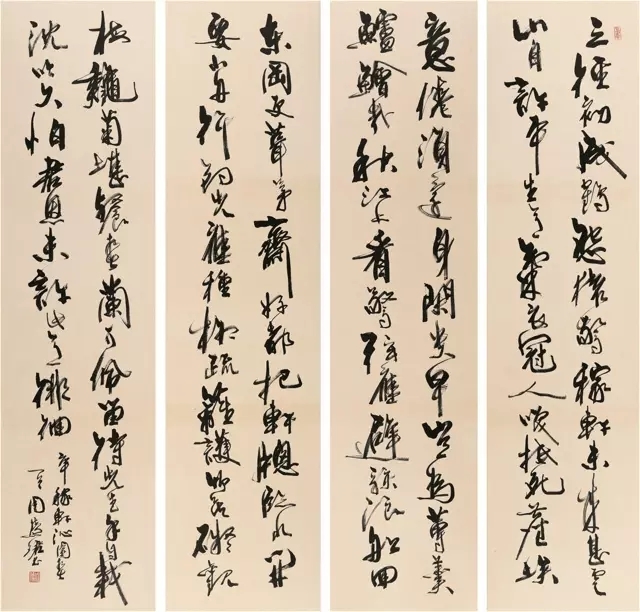 三徑初成鶴怨猿驚稼軒未來甚雲
山自許平生意氣衣冠人咲抵死塵埃
意倦須還身閑貴早豈為蓴羹
鱸鱠哉秋江上看驚弦雁避駭浪船回
東岡更葺茅齋好都把軒牕臨水開
要小舟行釣先應種柳疏籬護竹莫礙觀
梅龝菊堪餐春蘭可佩留待先生手自栽
沈吟久怕君恩未許此意徘徊
辛稼軒沁園春
周慧珺